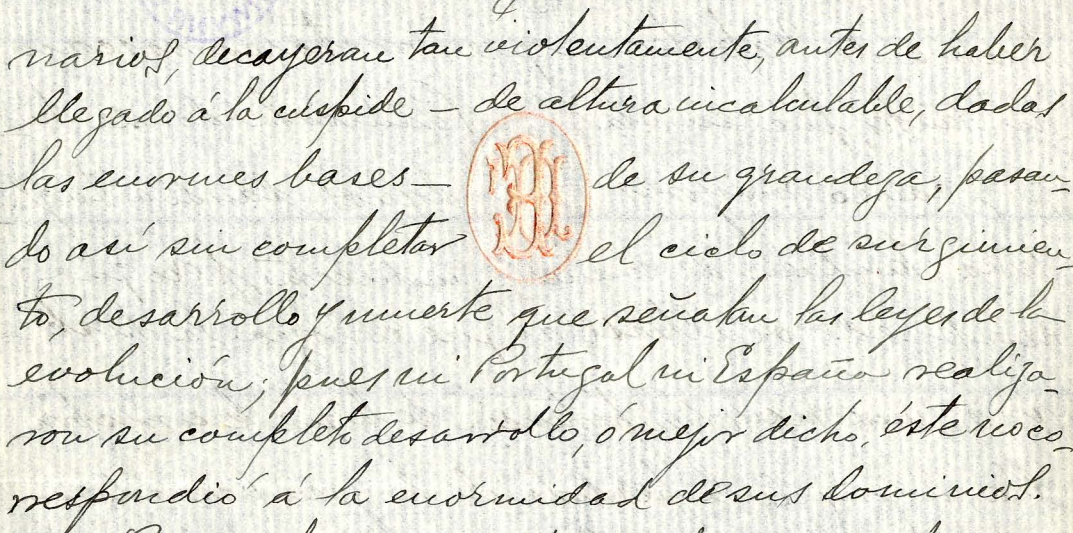 narios, decayeran tan violentamente, antes de haber
llegado á la cúspide – de altura incalculable, dadas
las enormes bases – de su grandeza, pasan-
do así sin completar el ciclo de surgimien-
to, desarrollo y muerte que señalan las leyes de la
evolución; pues ni Portugal ni España realiza-
ron su completo desarrollo, ó mejor dicho, éste no co-
rrespondió á la enormidad de sus dominios.